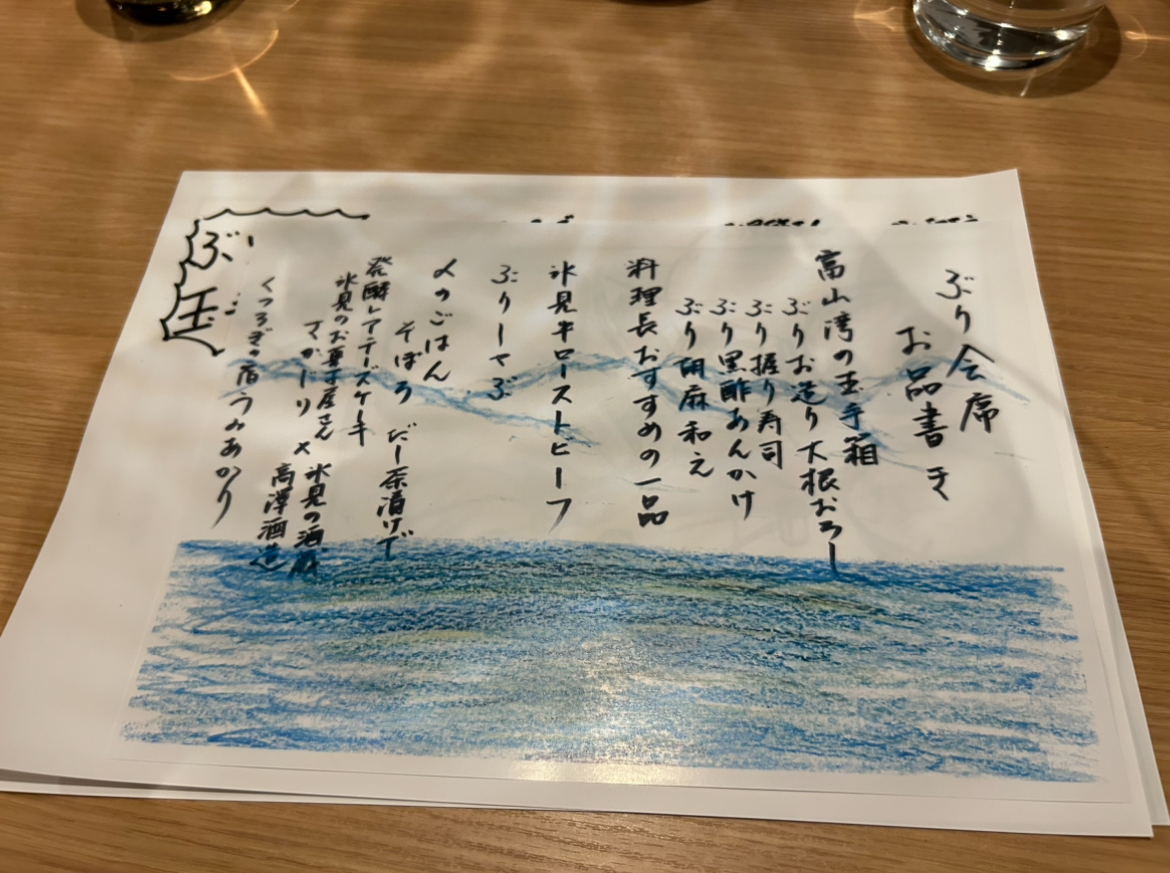 ぶり会席
お品書き
富山湾の玉手箱
ぶりお造り 大根おろし
ぶり握り寿司
ぶり黒酢あんかけ
ぶり胡麻和え
料理長おすすめの一品
氷見牛ローストビーフ
ぶりしゃぶ
〆のごはん
そぼろ だし茶漬けで
発酵レアチーズケーキ
氷見のお菓子屋さん
さかじり × 氷見の酒蔵
高澤酒造
くつろぎの宿うみあかり